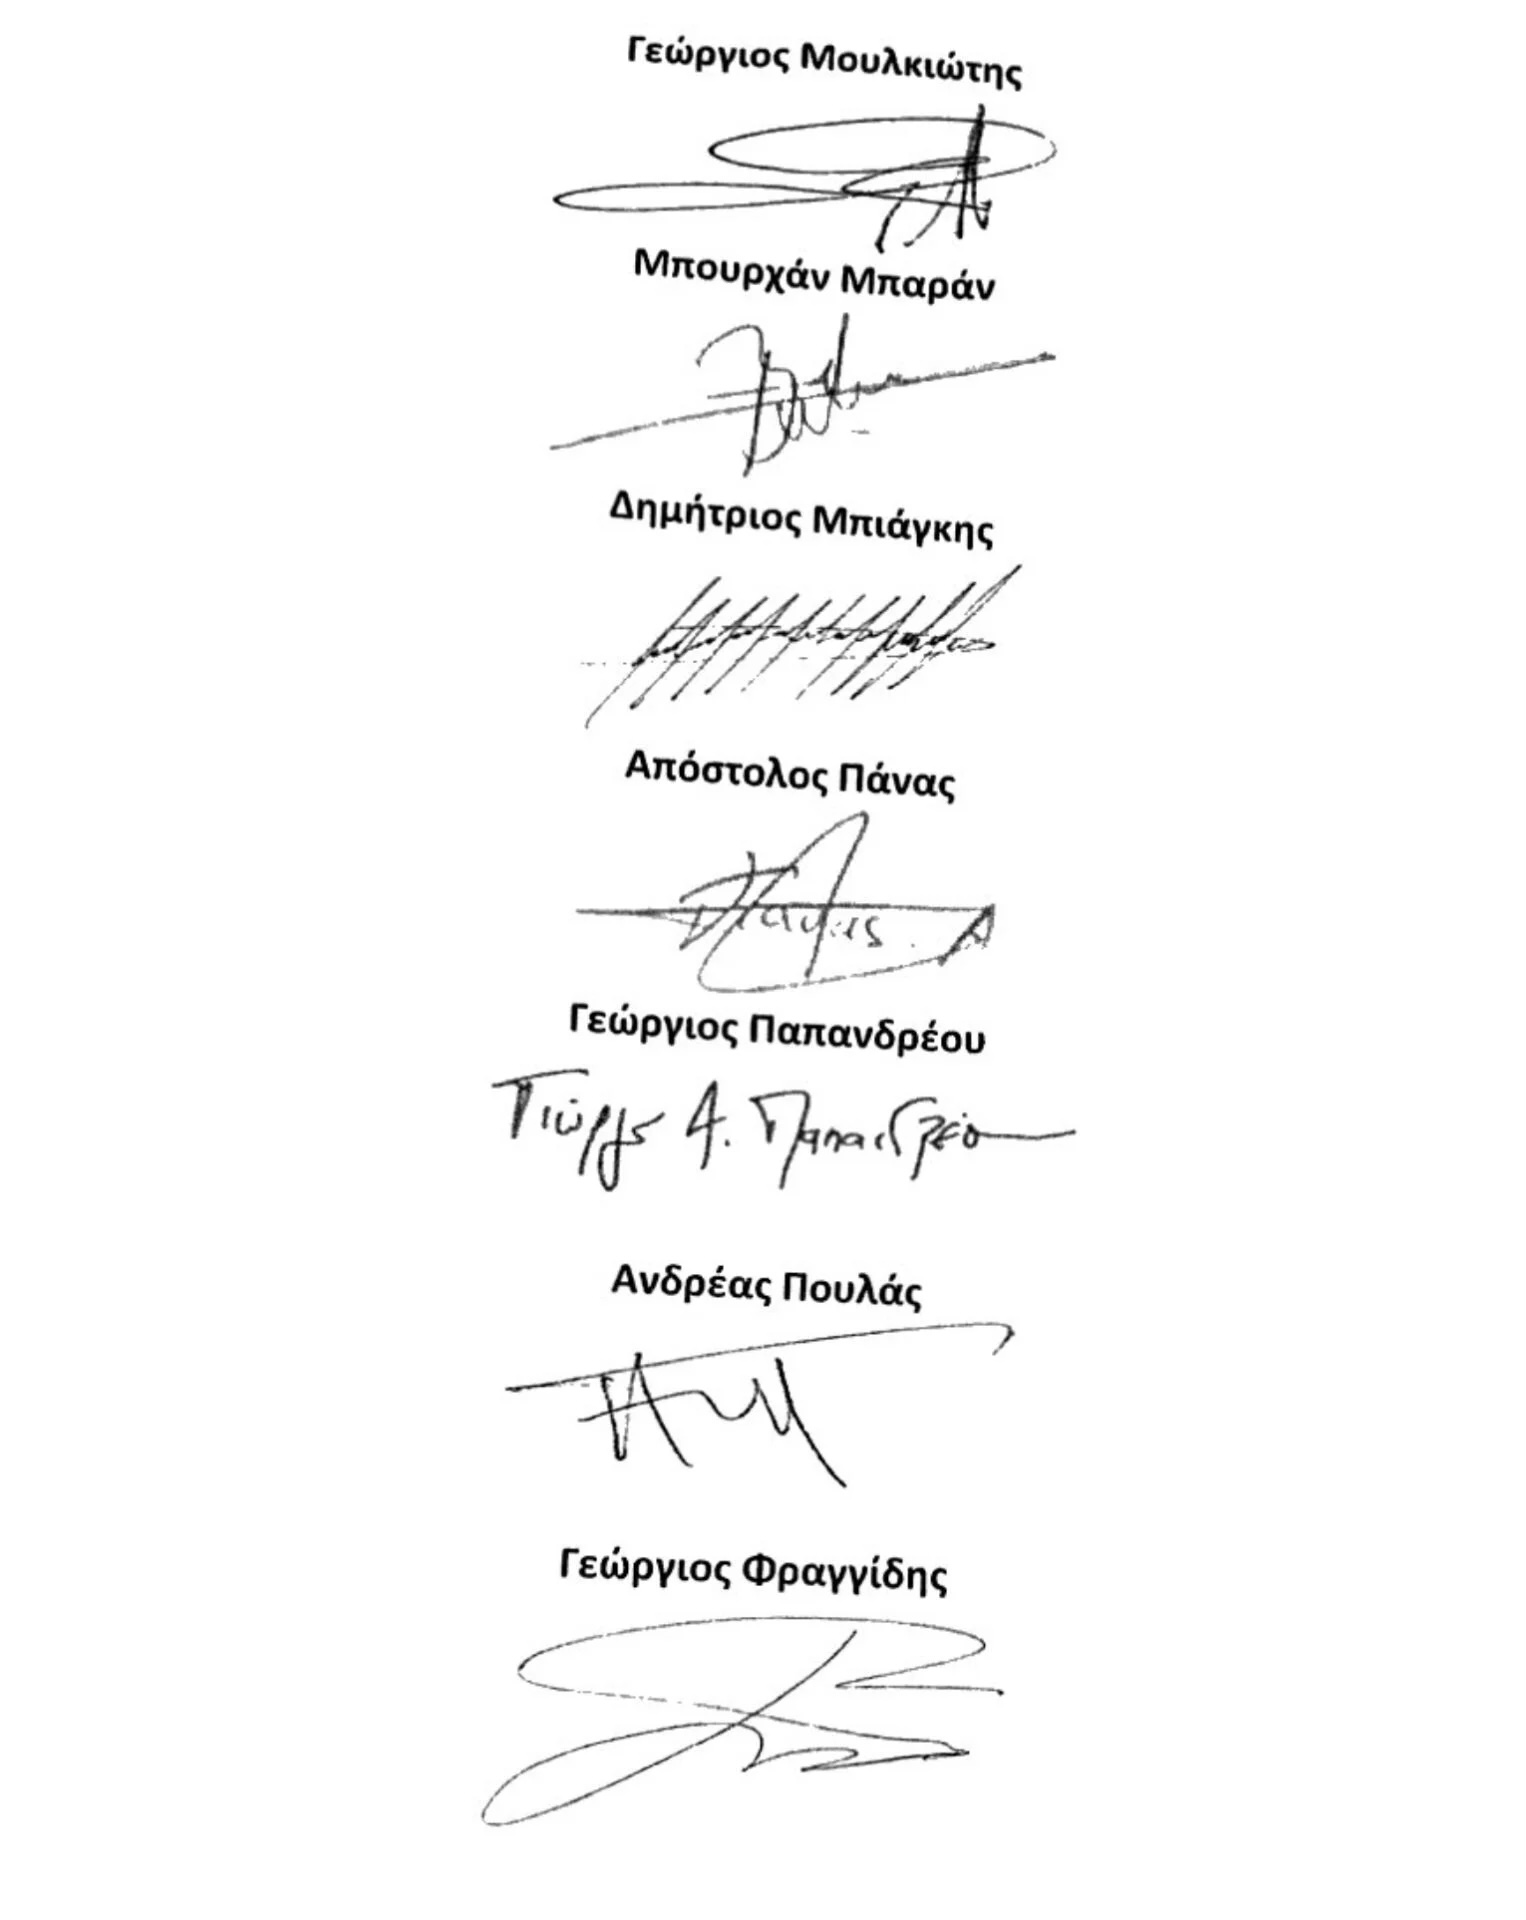 Γεώργιος Μουλκιώτης
Μπουρχάν Μπαράν
Δημήτριος Μπιάγκης
Απόστολος Πάνας
Πανας Α
Γεώργιος Παπανδρέου
Γιώργος Α. Παπανδρέου
Ανδρέας Πουλάς
Γεώργιος Φραγγίδης